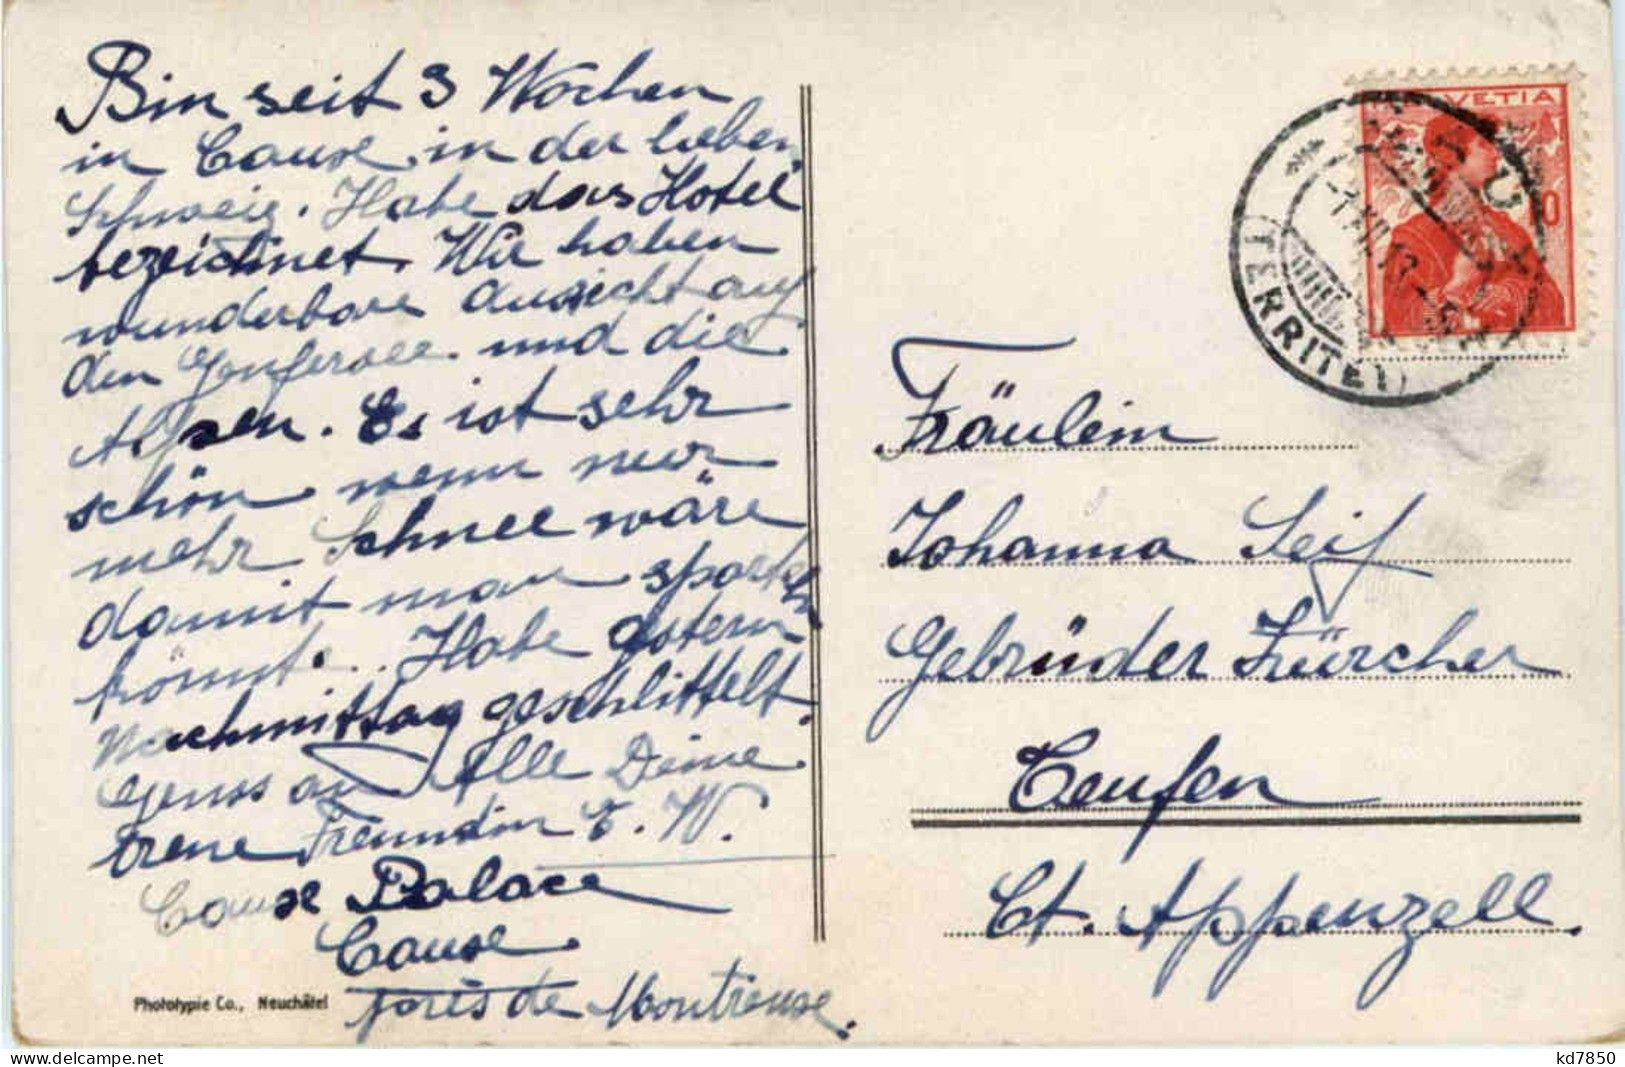 Bin seit 3 Wochen
in Caux, in der lieben
Schweiz. Habe das Hotel
bezeichnet. Wir haben
wunderbare Aussicht auf
den Genfersee und die
Alpen. Es ist sehr
schön wenn nur
mehr Schnee wäre
damit man sporteln
könnte. Habe gestern
Nachmittag geschlittelt.
Gruss an Alle Deine
treue Freundin E. W.
Caux Palace
Caux
près de Montreux.
Phototypie Co., Neuchâtel
HELVETIA
10
CAUX
(TERRITET)
Fräulein
Johanna Seif
Gebrüder Zürcher
Teufen
Ct. Appenzell.
kd7850